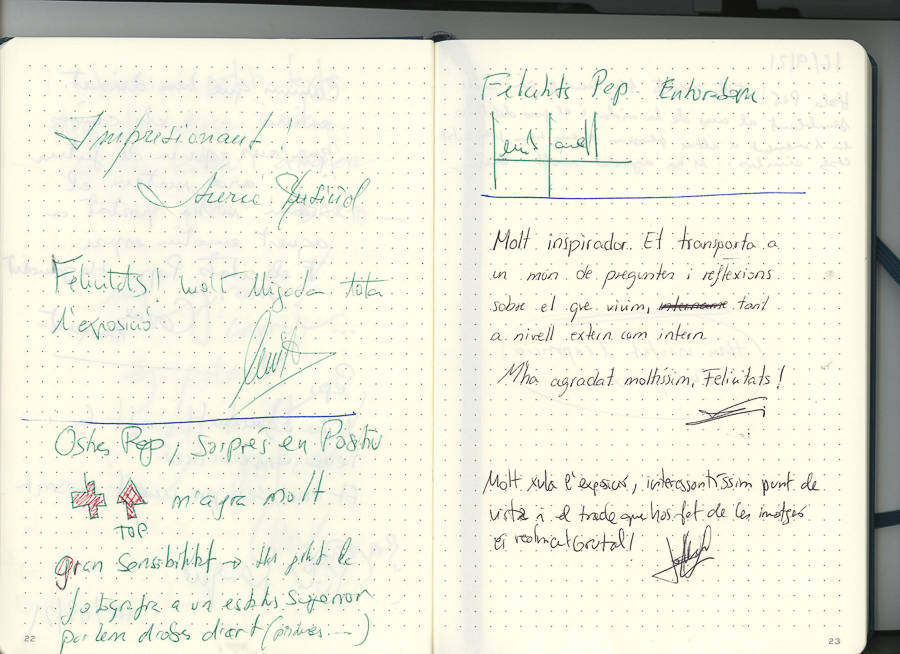 Impresionant!
Felicitats! molt lligada tota
l'exposició
Ostres Pep, Sorprés en Positiu
m'agra molt
TOP
gran sensibilitat → Has la
fotografia a un estatus superior
parlem d'obres d'art
22
Felicitats Pep. Enhorabona
Molt inspirador. Et transporta a
un món de preguntes i reflexions
sobre el que vivim, tant
a nivell extern com intern.
M'ha agradat moltíssim, Felicitats!
Molt xula l'exposició, interessantíssim punt de
vista i el tracte que has fet de les imatges
és realment brutal!
23